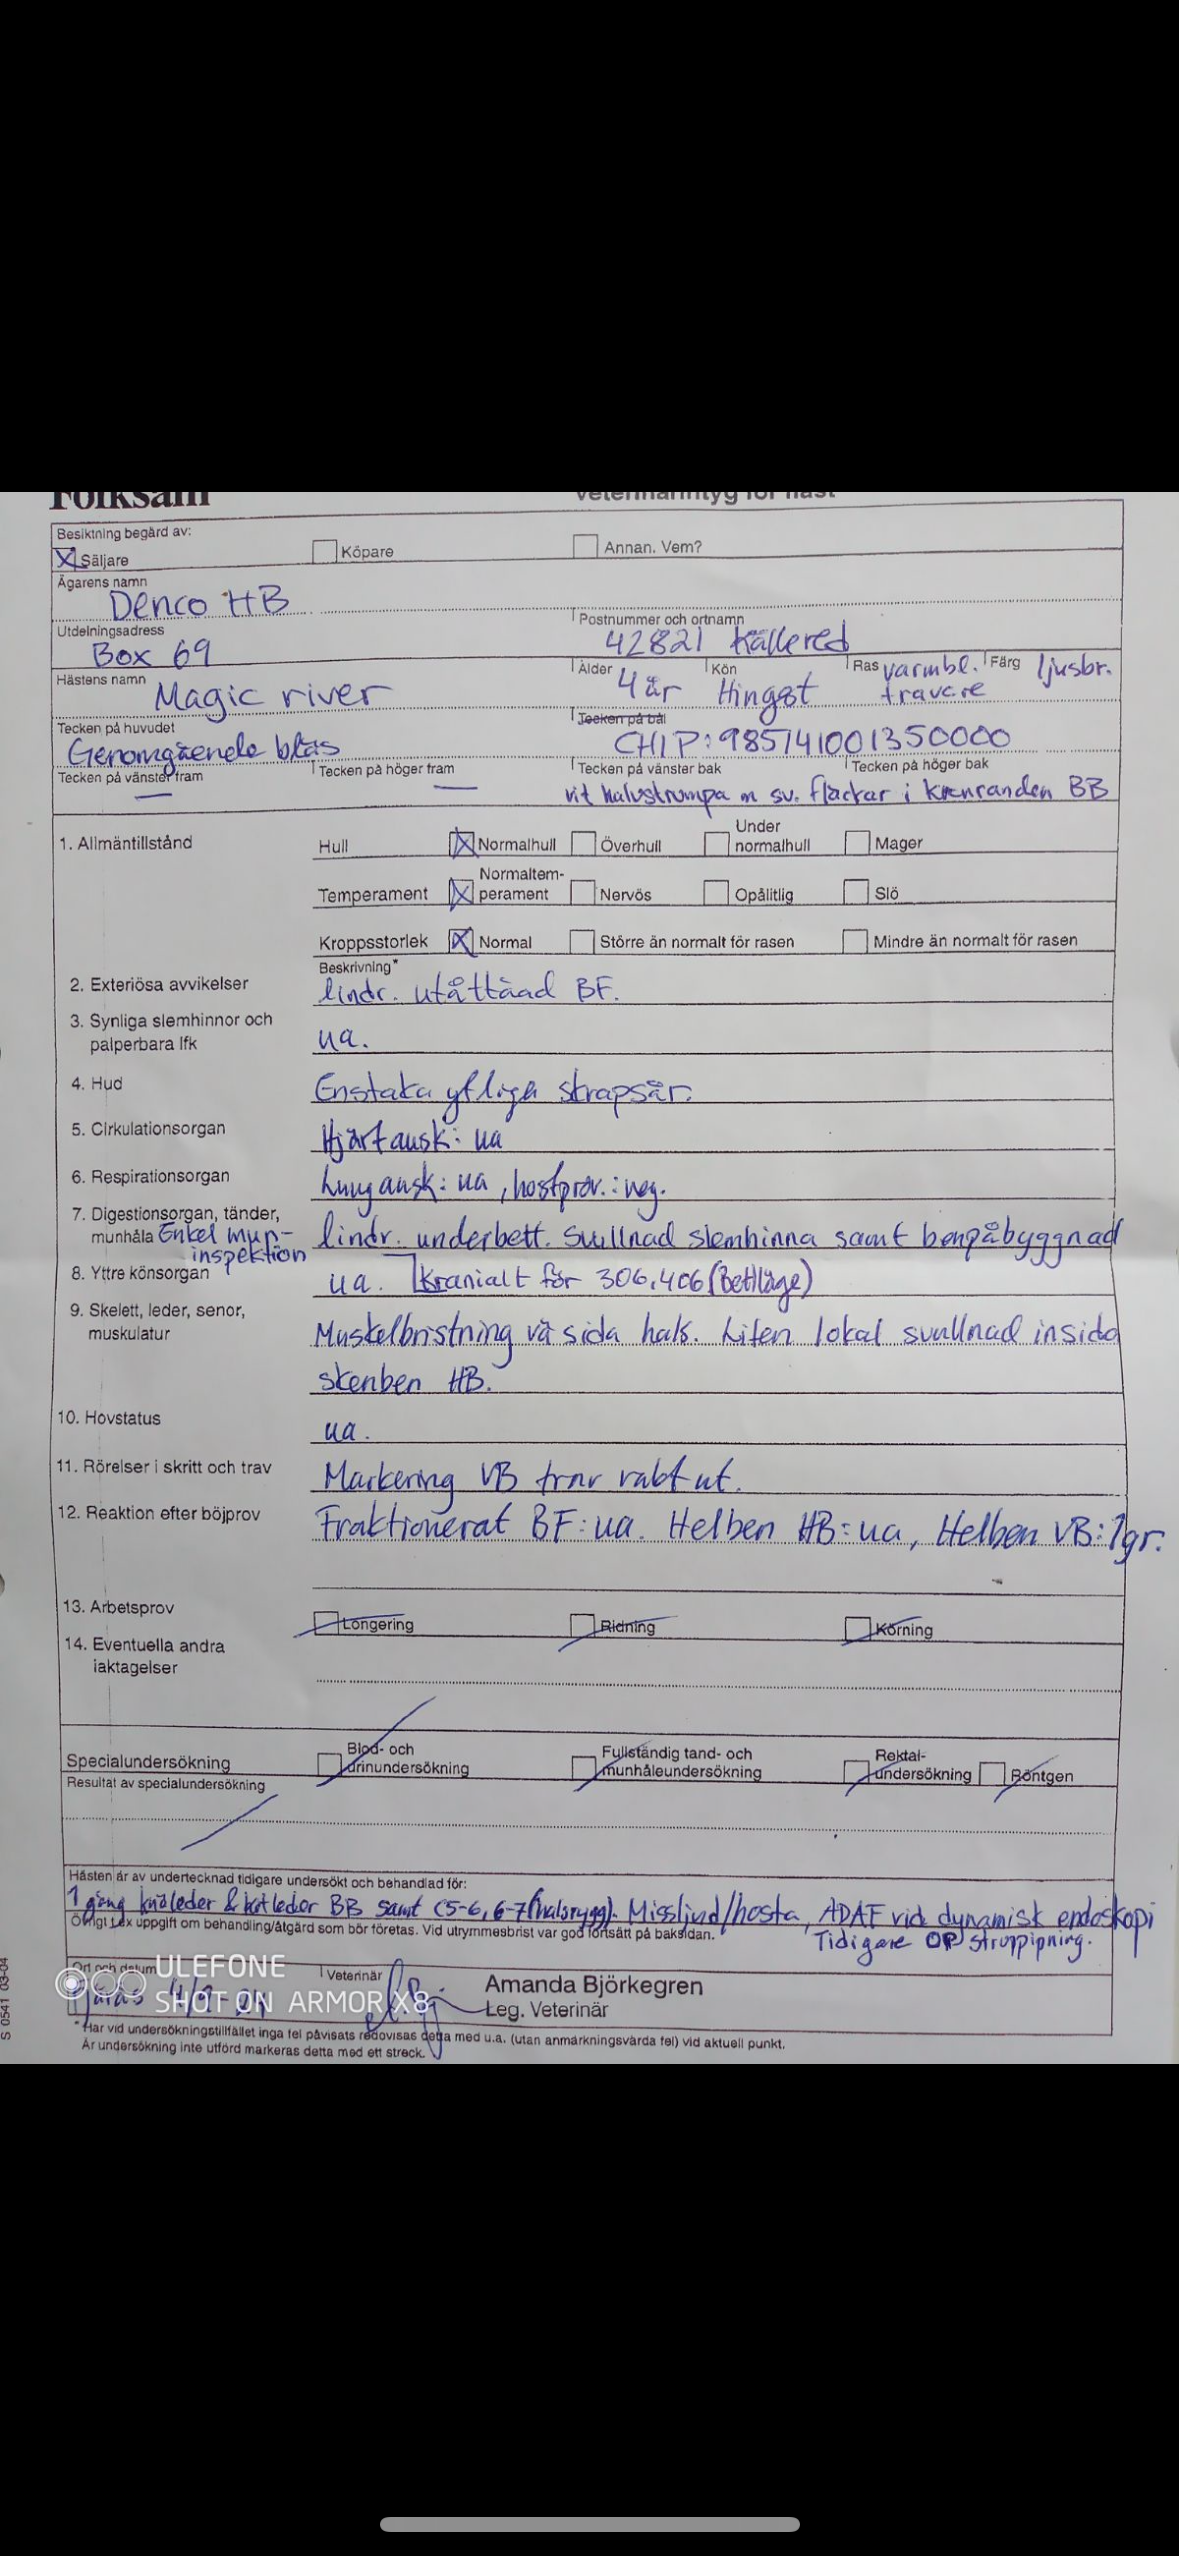 Folksam Veterinärintyg för häst
Besiktning begärd av:
X Säljare Köpare Annan. Vem?
Ägarens namn
Denco HB
Utdelningsadress Postnummer och ortnamn
Box 69 42821 Källered
Hästens namn Ålder Kön Ras Färg
Magic river 4 år Hingst varmbl. travare ljusbr.
Tecken på huvudet Tecken på bål
Genomgående bläs CHIP: 985741001350000
Tecken på vänster fram Tecken på höger fram Tecken på vänster bak Tecken på höger bak
— — vit halvstrumpa m sv. fläckar i kronranden BB
1. Allmäntillstånd Hull X Normalhull Överhull Under normalhull Mager
Temperament X Normaltem-perament Nervös Opålitlig Slö
Kroppsstorlek X Normal Större än normalt för rasen Mindre än normalt för rasen
Beskrivning*
2. Exteriösa avvikelser lindr. utåttåad BF.
3. Synliga slemhinnor och
palperbara lfk ua.
4. Hud Enstaka ytliga skrapsår.
5. Cirkulationsorgan Hjärtausk: ua
6. Respirationsorgan Lungausk: ua, hostprov.: neg.
7. Digestionsorgan, tänder,
munhåla Enkel mun-inspektion lindr. underbett. Svullnad slemhinna samt benpåbyggnad
kranialt för 306,406 (Bettläge)
8. Yttre könsorgan ua.
9. Skelett, leder, senor,
muskulatur Muskelbristning vä sida hals. Liten lokal svullnad insida
skenben HB.
10. Hovstatus ua.
11. Rörelser i skritt och trav Markering VB trav rakt ut.
12. Reaktion efter böjprov Fraktionerat BF: ua. Helben HB: ua, Helben VB: 1gr.
13. Arbetsprov Longering Ridning Körning
14. Eventuella andra
iaktagelser
Specialundersökning Blod- och urinundersökning Fullständig tand- och munhåleundersökning Rektal-undersökning Röntgen
Resultat av specialundersökning
Hästen är av undertecknad tidigare undersökt och behandlad för:
1 gång knäleder & kotleder BB samt C5-6, 6-7 (halsrygg). Missljud/hosta, ADAF vid dynamisk endoskopi
Övrigt t.ex uppgift om behandling/åtgärd som bör företas. Vid utrymmesbrist var god fortsätt på baksidan.
Tidigare OP struppipning.
Ort och datum Veterinär
Amanda Björkegren
Leg. Veterinär
ULEFONE
SHOT ON ARMOR X8
* Har vid undersökningstillfället inga fel påvisats redovisas detta med u.a. (utan anmärkningsvärda fel) vid aktuell punkt.
Är undersökning inte utförd markeras detta med ett streck.
S 0541 03-04